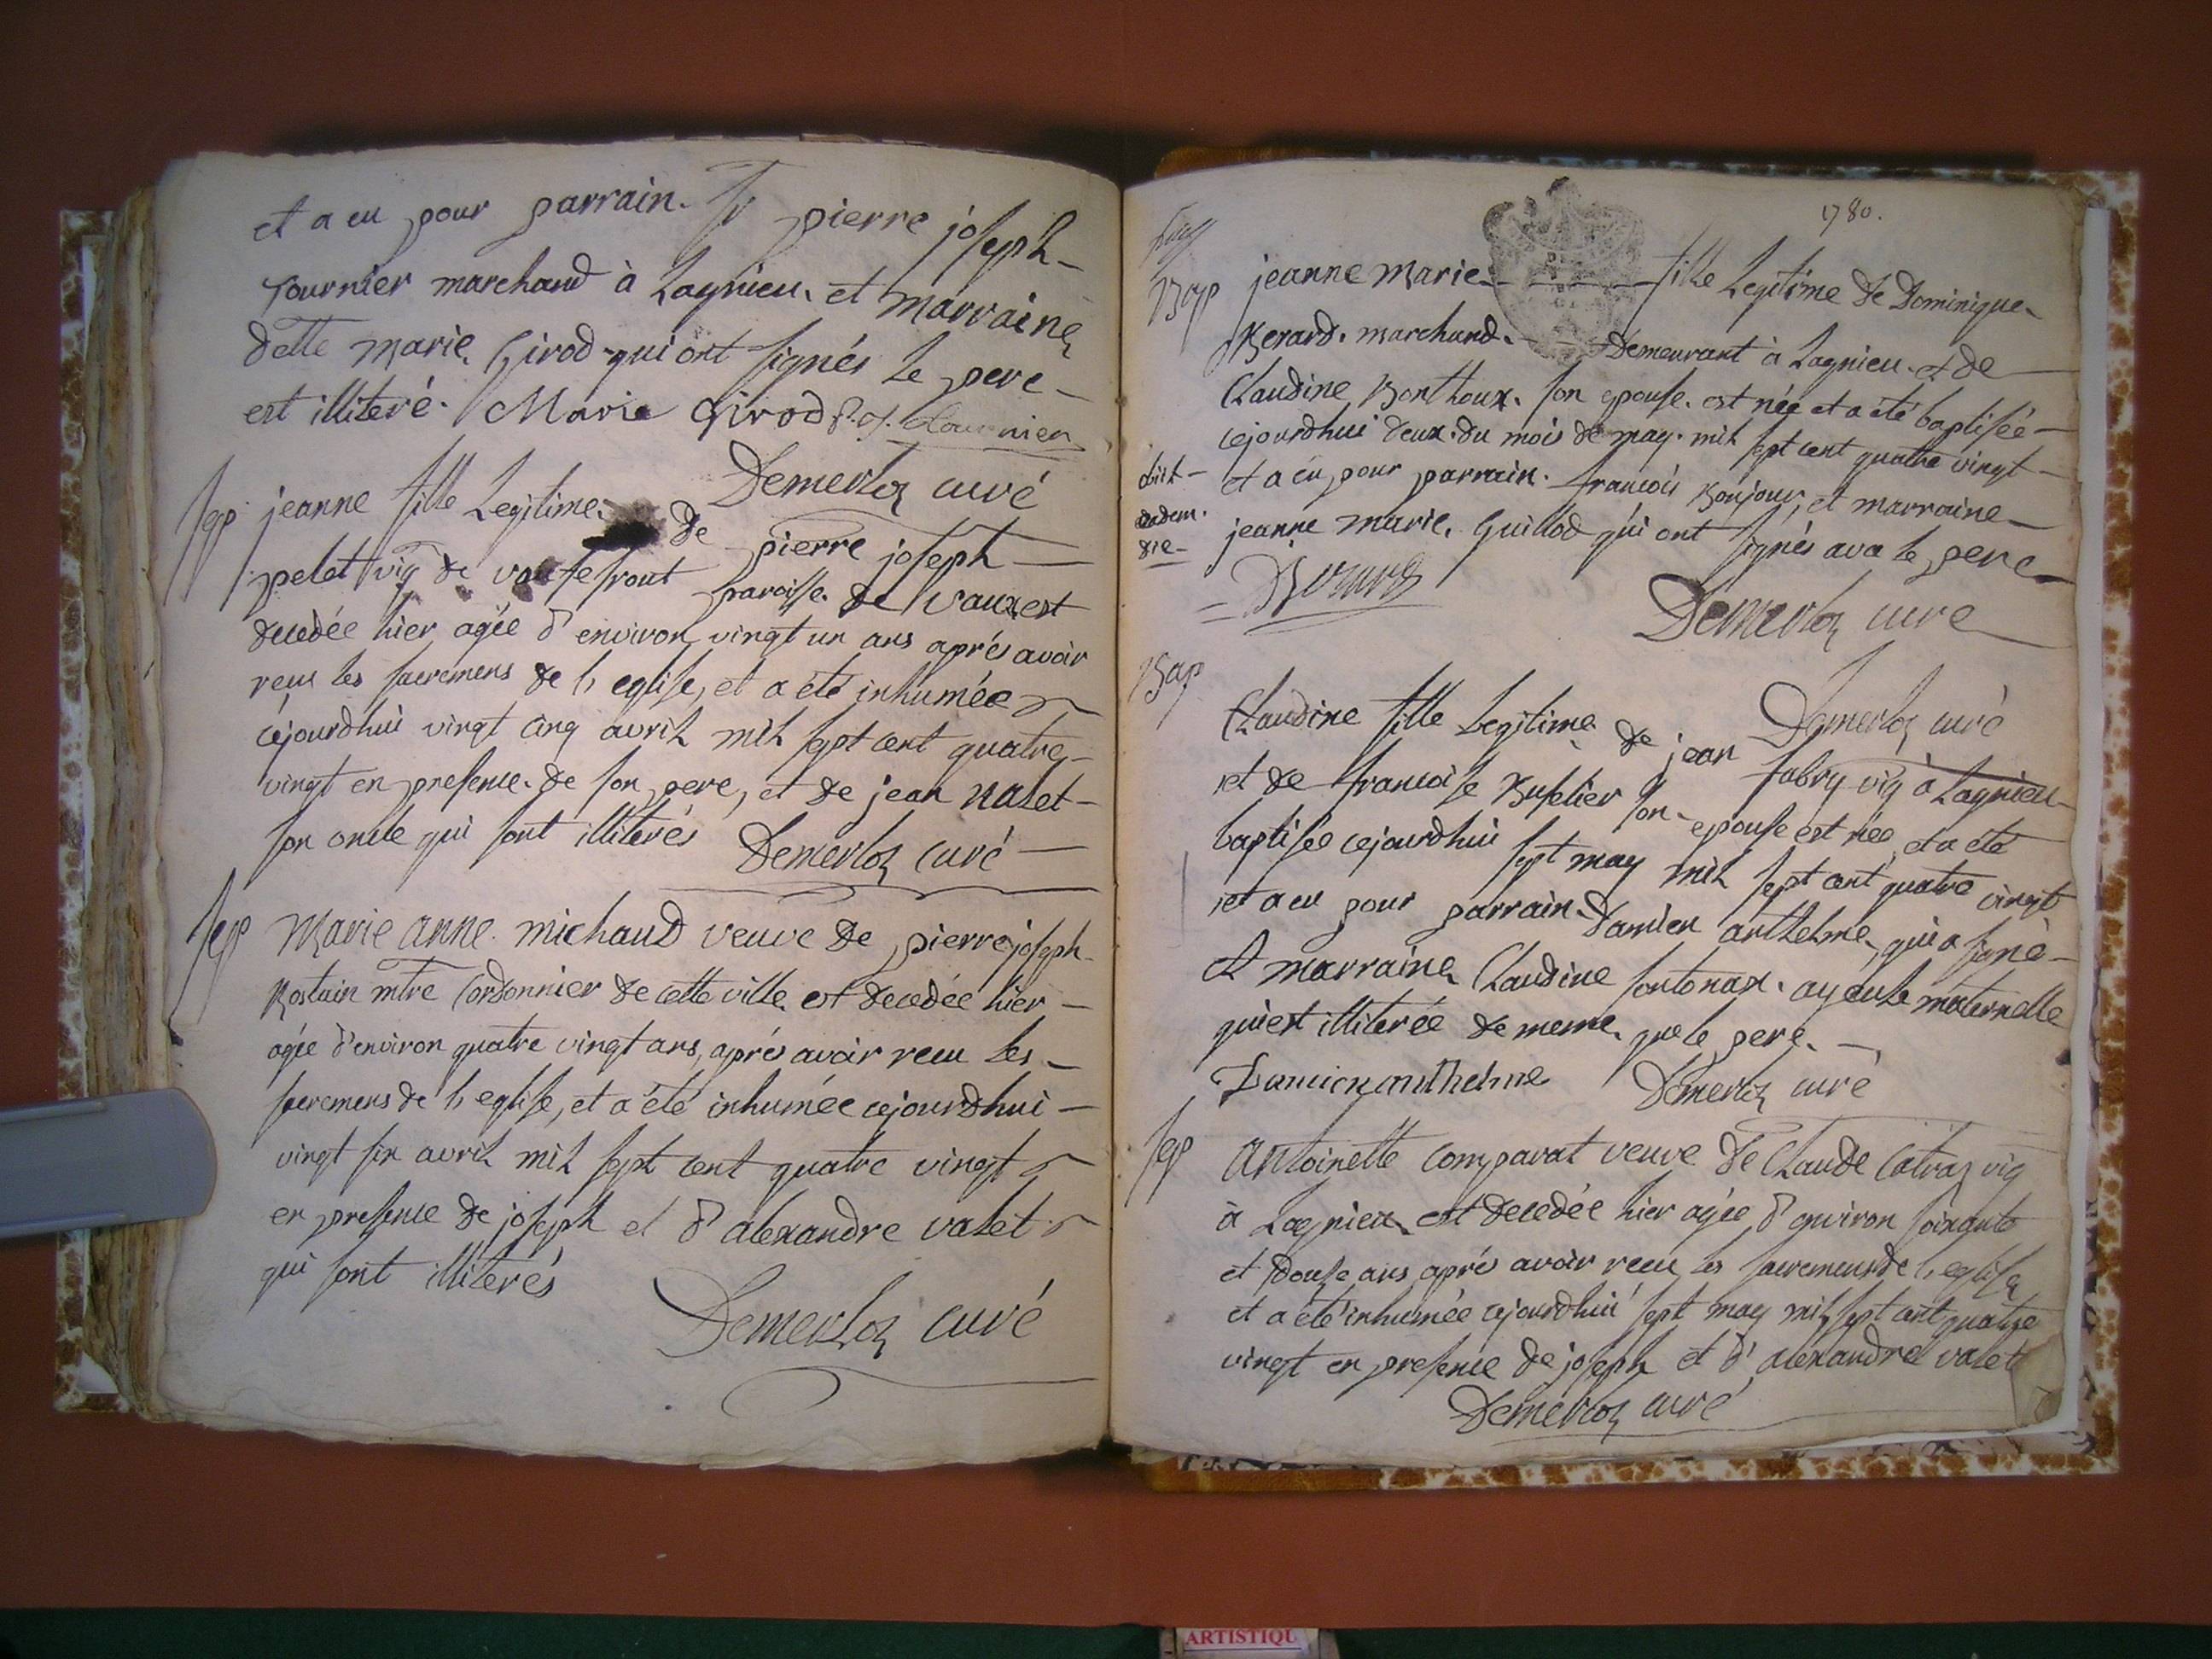 et a eu pour parrain. Sr pierre joseph
fournier marchand à Lagnieu. et marraine
delle marie Girod qui ont signés le pere
est illiteré. Marie Girod P. J. fournier
Demerloz curé
sep jeanne fille Legitime de pierre joseph
pelet vig de vaux paroisse de vaux est
decedée hier agée d'environ vingt un ans aprés avoir
reçu les sacremens de l'eglise, et a été inhumée
cejourdhui vingt cinq avril mil sept cent quatre
vingt en presence de son pere, et de jean valet
son oncle qui sont illiterés Demerloz curé
sep Marie anne michaud veuve de pierre joseph
Rostain mtre Cordonnier de cette ville est decedée hier
agée d'environ quatre vingt ans, aprés avoir recu les
sacremens de l'eglise, et a été inhumée cejourdhui
vingt six avril mil sept cent quatre vingt
en presence de joseph et d'alexandre valet
qui sont illiterés
Demerloz curé
1780.
Bap jeanne marie fille Legitime de Dominique
Berard. marchand. Demeurant à Lagnieu. et de
Claudine Bonthoux. son epouse. est née et a été baptisée
cejourdhui deux du mois de may. mil sept cent quatre vingt
et a eu pour parrain. francois Bonjour, et marraine
jeanne marie. Guillod qui ont signés avec le pere
obiit
eadem.
die
Berard
Demerloz cure
Bap
Demerloz curé
Claudine fille Legitime de jean fabry vig à Lagnieu
et de francoise Buselier son epouse est née, et a été
baptisée cejourdhui sept may mil sept cent quatre vingt
et a eu pour parrain Damien anthelme, qui a signé
et marraine Claudine fontonax. ayeule maternelle
qui est illiterée de meme que le pere.
Damien anthelme Demerloz curé
sep Antoinette comparat veuve de Claude Catraz vig
à Lagnieu est decedée hier agée d'environ soixante
et douse ans aprés avoir recu les sacremens de l'eglise
et a été inhumée cejourdhui sept may mil sept cent quatre
vingt en presence de joseph et d'alexandre valet
Demerloz curé
ARTISTIQU